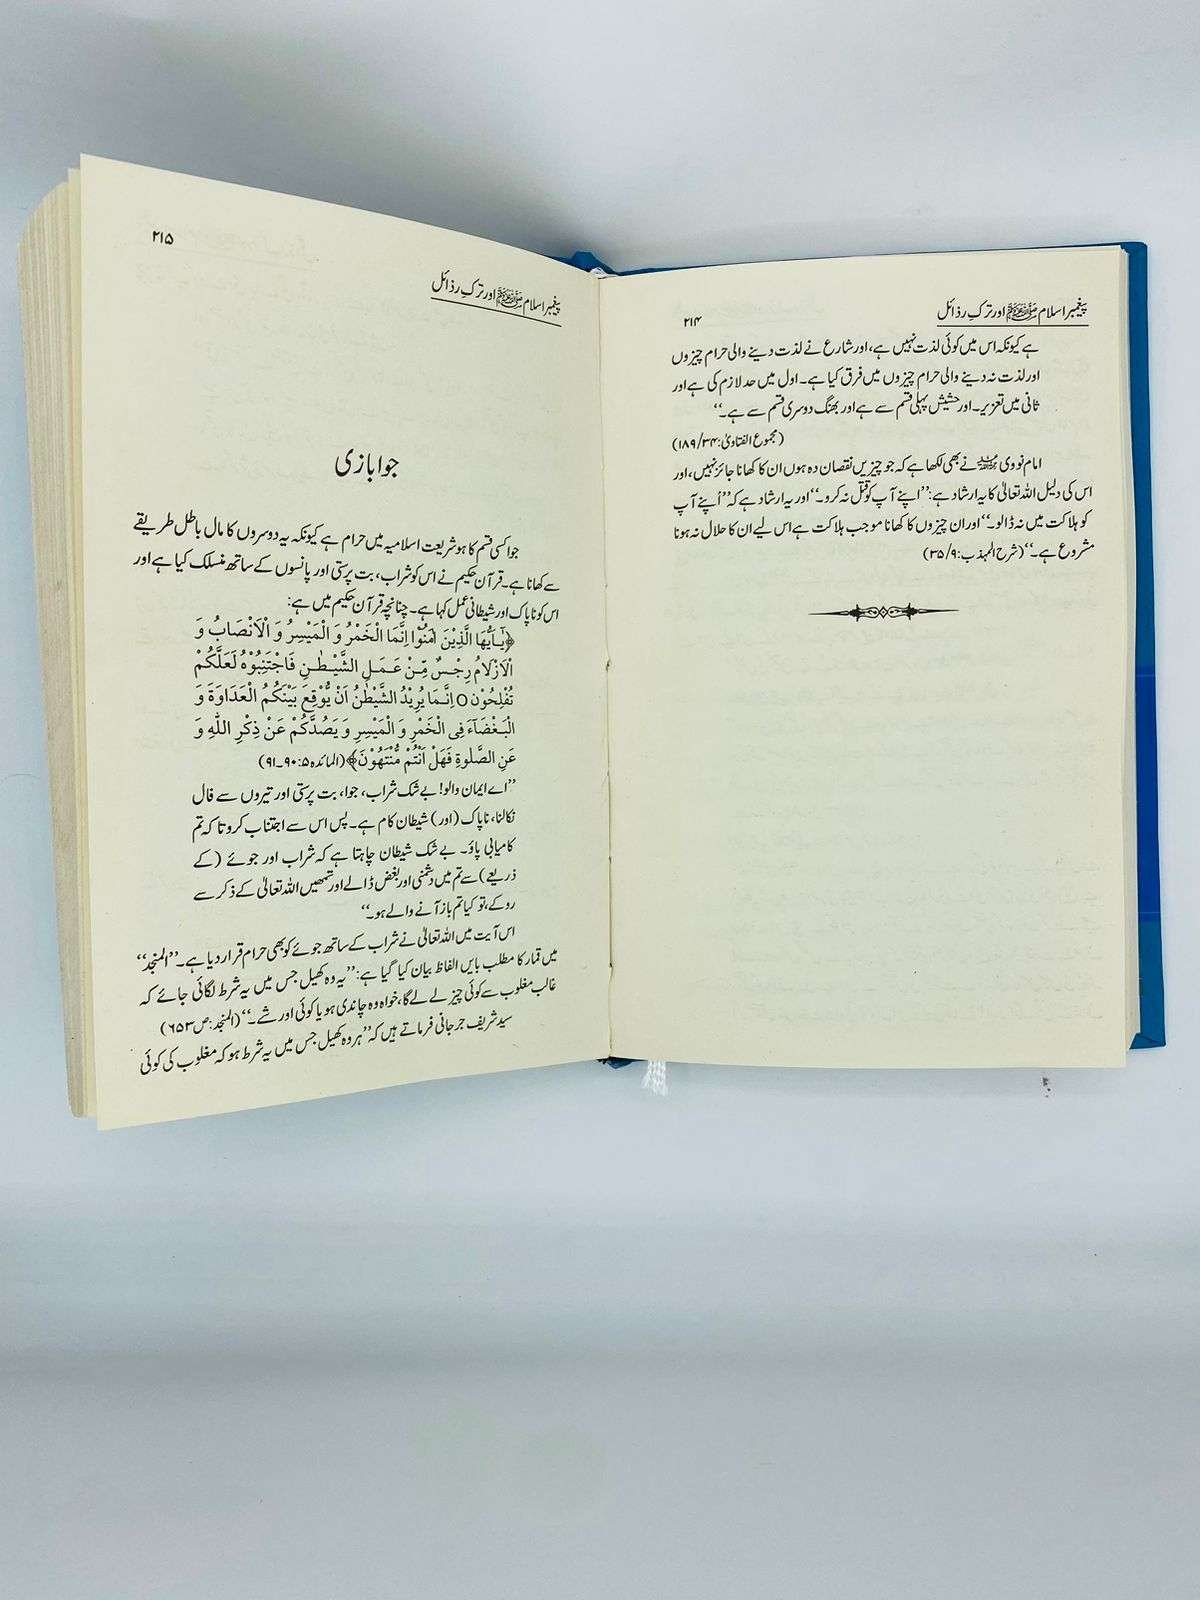 پیغمبر اسلام ﷺ اور ترکِ رذائل
۲۱۴
ہے کیونکہ اس میں کوئی لذت نہیں ہے، اور شارع نے لذت دینے والی حرام چیزوں
اور لذت نہ دینے والی حرام چیزوں میں فرق کیا ہے۔ اول میں حد لازم کی ہے اور
ثانی میں تعزیر۔ اور حشیش پہلی قسم سے ہے اور بھنگ دوسری قسم سے ہے۔‘‘
(مجموع الفتاویٰ: ۳۴/۱۸۹)
امام نووی رحمہ اللہ نے بھی لکھا ہے کہ جو چیزیں نقصان دہ ہوں ان کا کھانا جائز نہیں، اور
اس کی دلیل اللہ تعالیٰ کا یہ ارشاد ہے: ’’اپنے آپ کو قتل نہ کرو۔‘‘ اور یہ ارشاد ہے کہ ’’اُپنے آپ
کو ہلاکت میں نہ ڈالو۔‘‘ اور ان چیزوں کا کھانا موجب ہلاکت ہے اس لیے ان کا حلال نہ ہونا
مشروع ہے۔‘‘ (شرح المہذب: ۹/۳۵)
پیغمبر اسلام ﷺ اور ترکِ رذائل
۲۱۵
جوا بازی
جوا کسی قسم کا ہو شریعت اسلامیہ میں حرام ہے کیونکہ یہ دوسروں کا مال باطل طریقے
سے کھانا ہے۔ قرآن حکیم نے اس کو شراب، بت پرستی اور پانسوں کے ساتھ منسلک کیا ہے اور
اس کو ناپاک اور شیطانی عمل کہا ہے۔ چنانچہ قرآن حکیم میں ہے:
﴿یٰۤاَیُّهَا الَّذِیْنَ اٰمَنُوْۤا اِنَّمَا الْخَمْرُ وَ الْمَیْسِرُ وَ الْاَنْصَابُ وَ
الْاَزْلَامُ رِجْسٌ مِّنْ عَمَلِ الشَّیْطٰنِ فَاجْتَنِبُوْهُ لَعَلَّکُمْ
تُفْلِحُوْنَ ○ اِنَّمَا یُرِیْدُ الشَّیْطٰنُ اَنْ یُّوْقِعَ بَیْنَکُمُ الْعَدَاوَةَ وَ
الْبَغْضَآءَ فِی الْخَمْرِ وَ الْمَیْسِرِ وَ یَصُدَّکُمْ عَنْ ذِکْرِ اللّٰهِ وَ
عَنِ الصَّلٰوةِ فَهَلْ اَنْتُمْ مُّنْتَهُوْنَ﴾ (المائدہ ۵: ۹۰۔۹۱)
’’اے ایمان والو! بے شک شراب، جوا، بت پرستی اور تیروں سے فال
نکالنا، ناپاک (اور) شیطان کام ہے۔ پس اس سے اجتناب کرو تا کہ تم
کامیابی پاؤ۔ بے شک شیطان چاہتا ہے کہ شراب اور جوئے (کے
ذریعے) سے تم میں دشمنی اور بغض ڈالے اور تمھیں اللہ تعالیٰ کے ذکر سے
روکے، تو کیا تم باز آنے والے ہو۔‘‘
اس آیت میں اللہ تعالیٰ نے شراب کے ساتھ جوئے کو بھی حرام قرار دیا ہے۔ ’’المنجد‘‘
میں قمار کا مطلب بایں الفاظ بیان کیا گیا ہے: ’’یہ وہ کھیل جس میں یہ شرط لگائی جائے کہ
غالب مغلوب سے کوئی چیز لے لے گا، خواہ وہ چاندی ہو یا کوئی اور شے۔‘‘ (المنجد: ص ۶۵۳)
سید شریف جرجانی فرماتے ہیں کہ ’’ہر وہ کھیل جس میں یہ شرط ہو کہ مغلوب کی کوئی